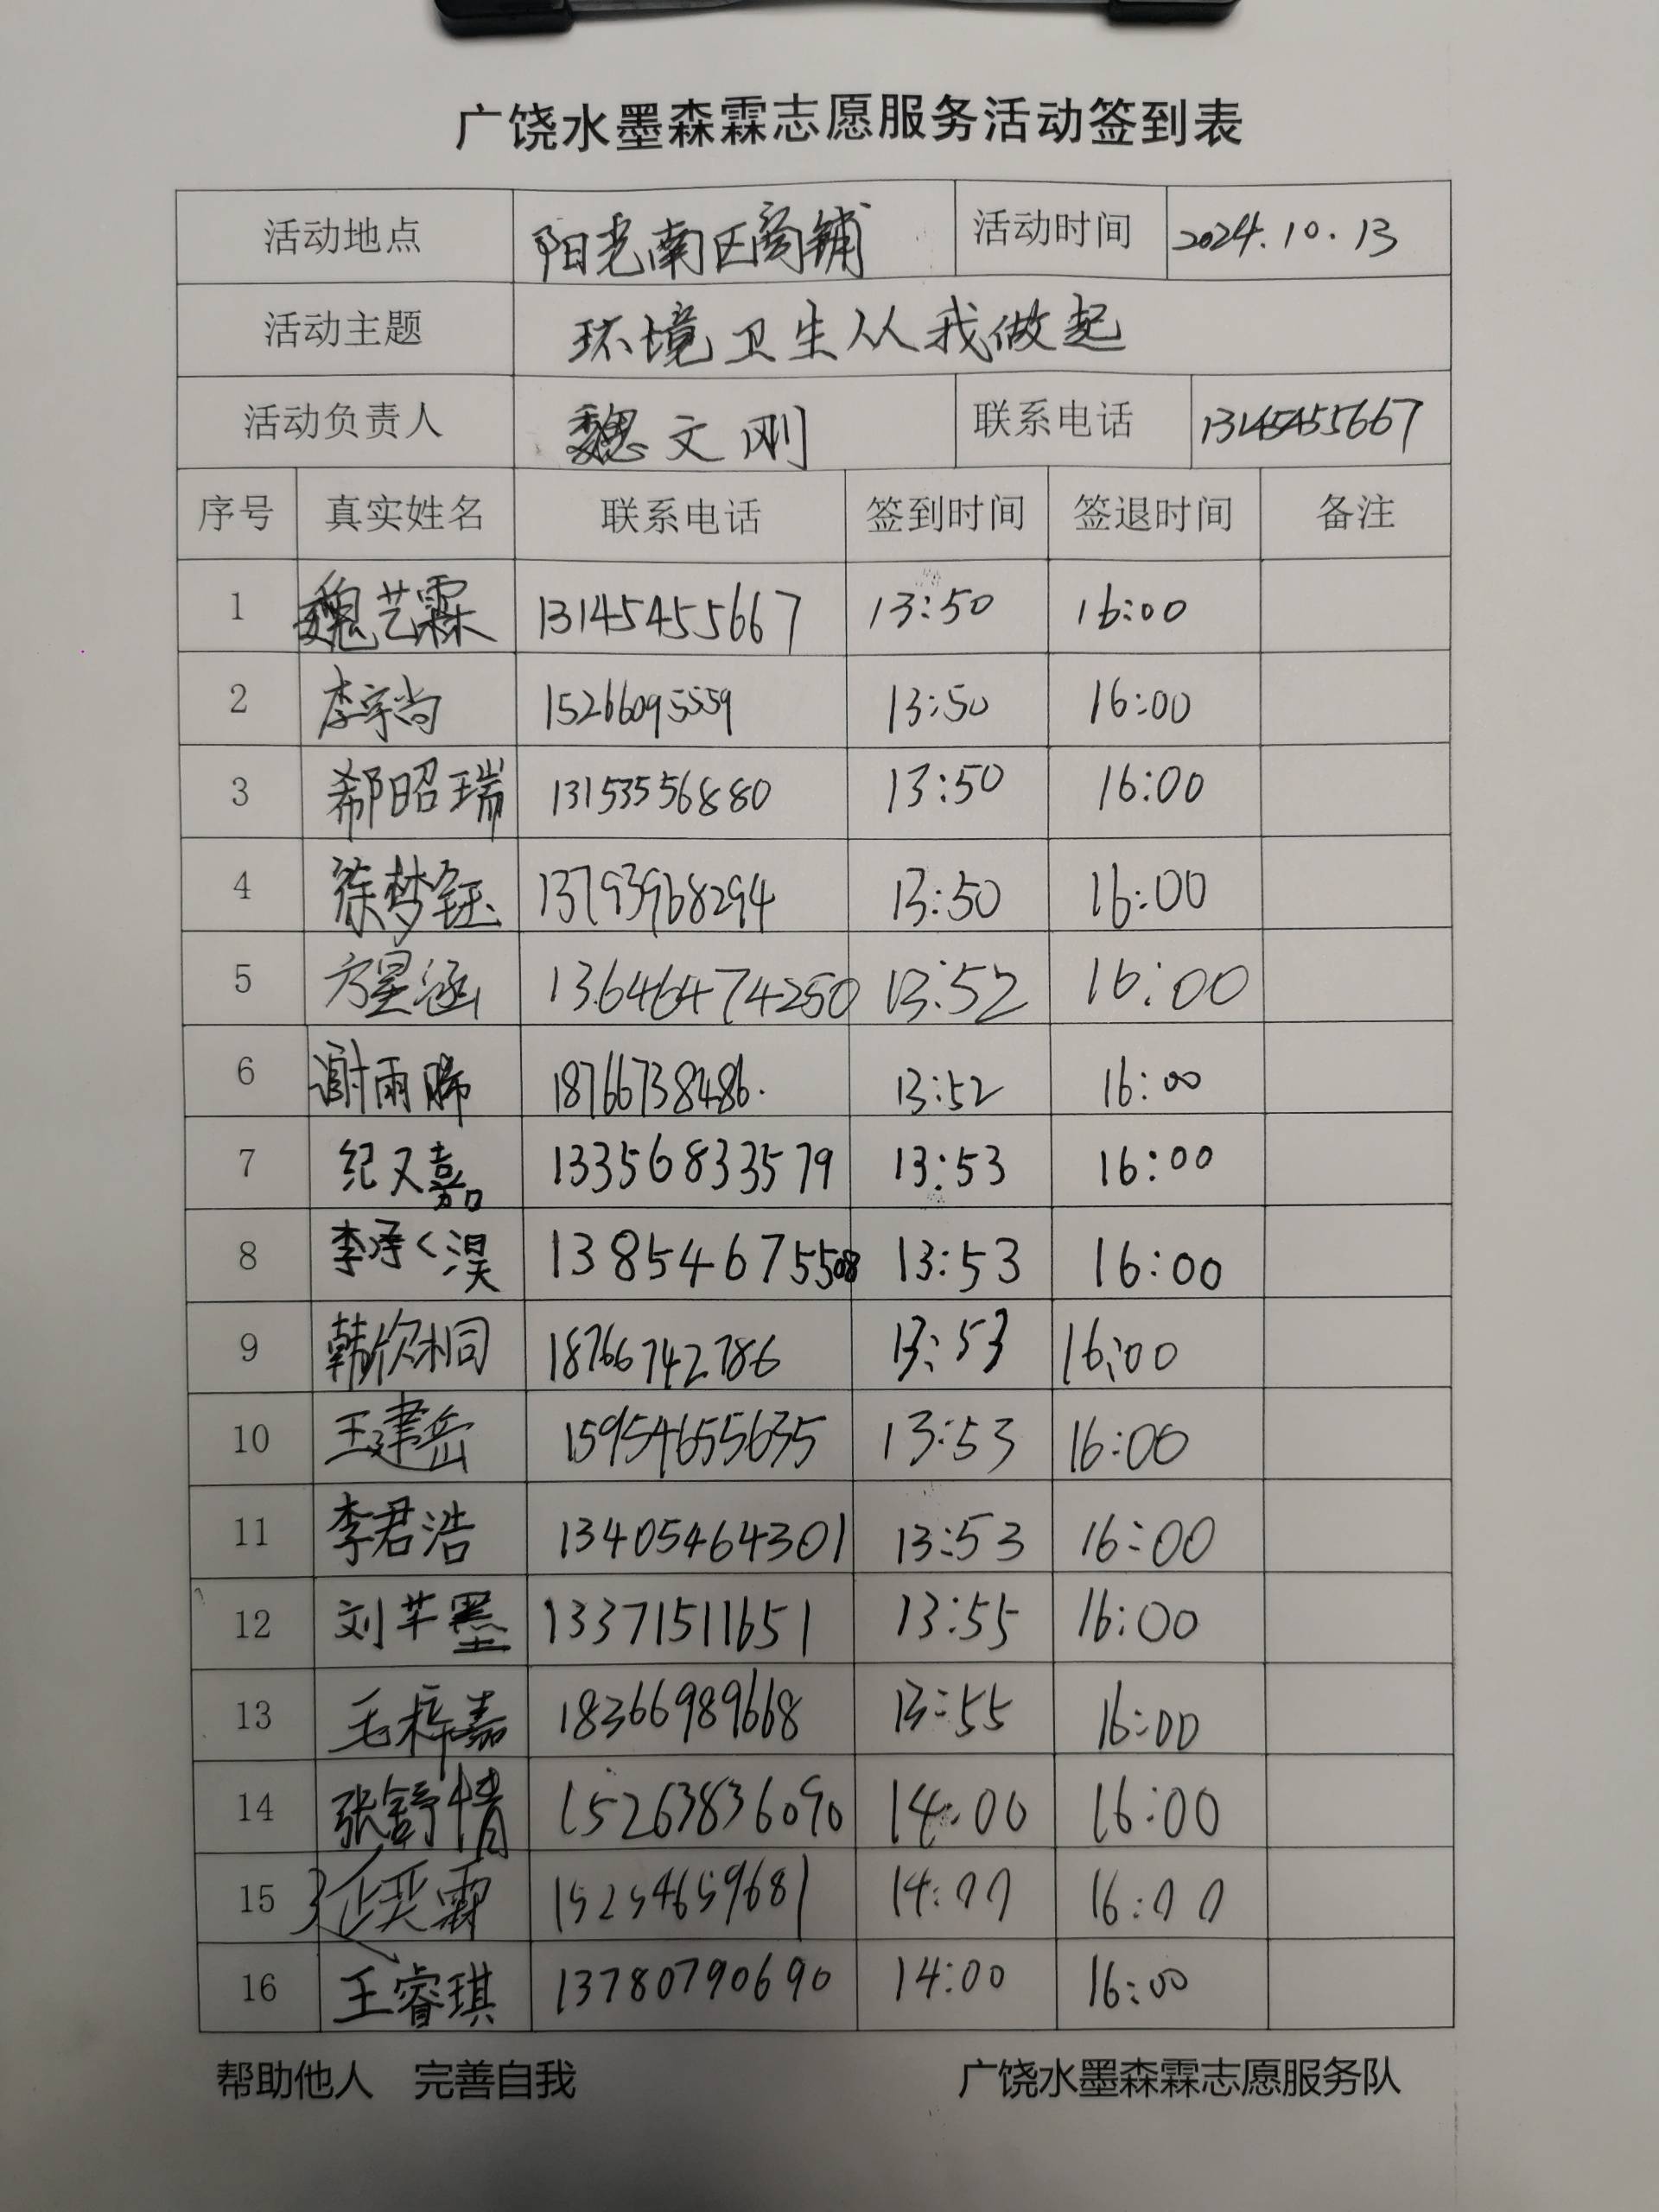 广饶水墨森霖志愿服务活动签到表
活动地点 阳光南区商铺 活动时间 2024.10.13
活动主题 环境卫生从我做起
活动负责人 魏文刚 联系电话 13145455667
序号 真实姓名 联系电话 签到时间 签退时间 备注
1 魏艺霖 13145455667 13:50 16:00
2 李宇尚 15266095559 13:50 16:00
3 郗昭瑞 13153556880 13:50 16:00
4 徐梦钰 13793968294 13:50 16:00
5 方星涵 13646474250 13:52 16:00
6 谢雨晞 18766738486. 13:52 16:00
7 纪又嘉 13356833579 13:53 16:00
8 李承淏 13854675508 13:53 16:00
9 韩欣桐 18766742786 13:53 16:00
10 王建岳 15954655635 13:53 16:00
11 李君浩 13405464301 13:53 16:00
12 刘芊墨 13371511651 13:55 16:00
13 毛梓嘉 18366989668 13:55 16:00
14 张舒情 15263836090 14:00 16:00
15 15254659681 14:00 16:00
16 王睿琪 13780790690 14:00 16:00
帮助他人 完善自我 广饶水墨森霖志愿服务队